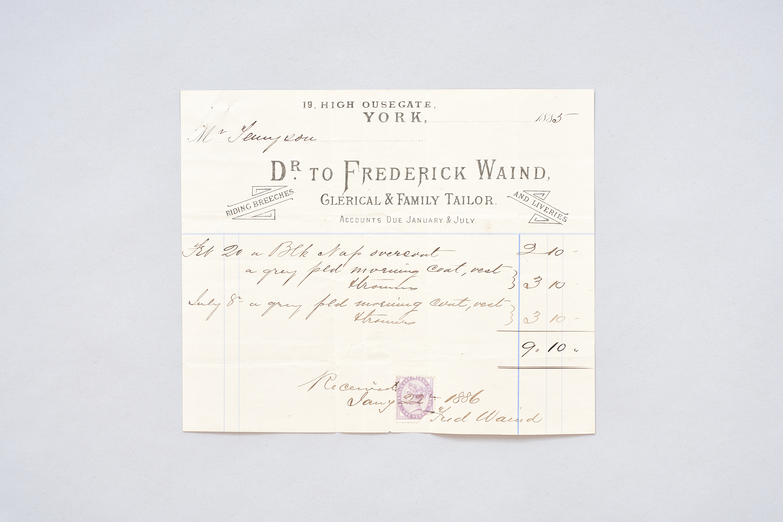 19, HIGH OUSEGATE,
YORK, 1885
Mr Tennyson
DR. TO FREDERICK WAIND,
CLERICAL & FAMILY TAILOR.
RIDING BREECHES
AND LIVERIES
ACCOUNTS DUE JANUARY & JULY
Feb 20 a Blk Nap overcoat 2 10 -
a grey pld morning coat, vest
& trousers 3 10
July 8 a grey pld morning coat, vest
& trousers 3 10
9. 10 -
Received
Jany 22 1886
Fred Waind